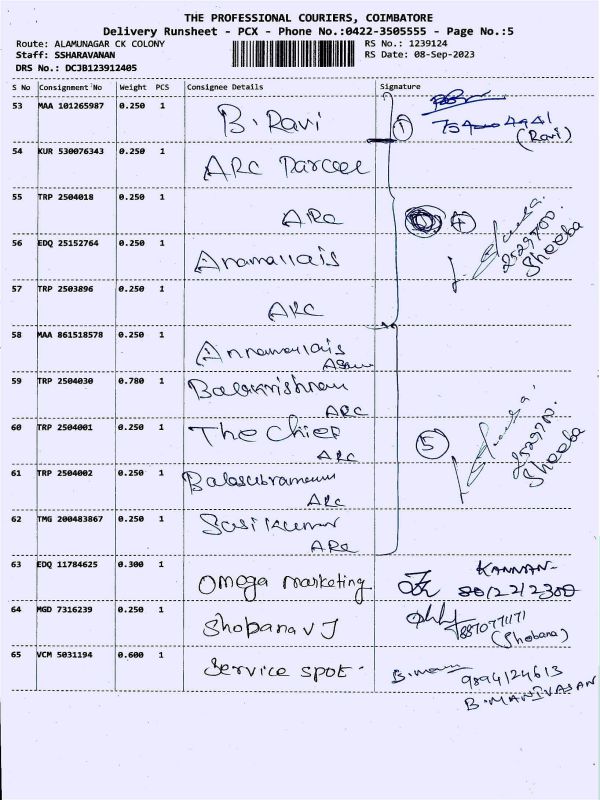 THE PROFESSIONAL COURIERS, COIMBATORE
Delivery Runsheet - PCX - Phone No.:0422-3505555 - Page No.:5
Route: ALAMUNAGAR CK COLONY RS No.: 1239124
Staff: SSHARAVANAN RS Date: 08-Sep-2023
DRS No.: DCJB123912405
S No Consignment No Weight PCS Consignee Details Signature
53 MAA 101265987 0.250 1 B. Ravi 1
(Ravi)
54 KUR 530076343 0.250 1 ARC Parcel
55 TRP 2504018 0.250 1 ARC 4
2529700
Sheeba
56 EDQ 25152764 0.250 1 Anamallais
57 TRP 2503896 0.250 1 ARC
58 MAA 861518578 0.250 1 Annamallais
59 TRP 2504030 0.780 1 Balakrishnan
ARC
60 TRP 2504001 0.250 1 The Chief 5
ARC
2529700
Sheeba
61 TRP 2504002 0.250 1 Balasubramanium
ARC
62 TMG 200483867 0.250 1 Sasikumar
ARC
63 EDQ 11784625 0.300 1 Omega marketing KANNAN
64 MGD 7316239 0.250 1 Shobana V J
(Shobana)
65 VCM 5031194 0.600 1 Service spot.
9894124613
B. MANIVASAN